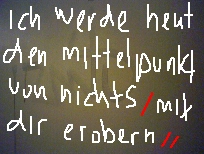 ich werde heut
den mittelpunkt
von nichts / mit
dir erobern //